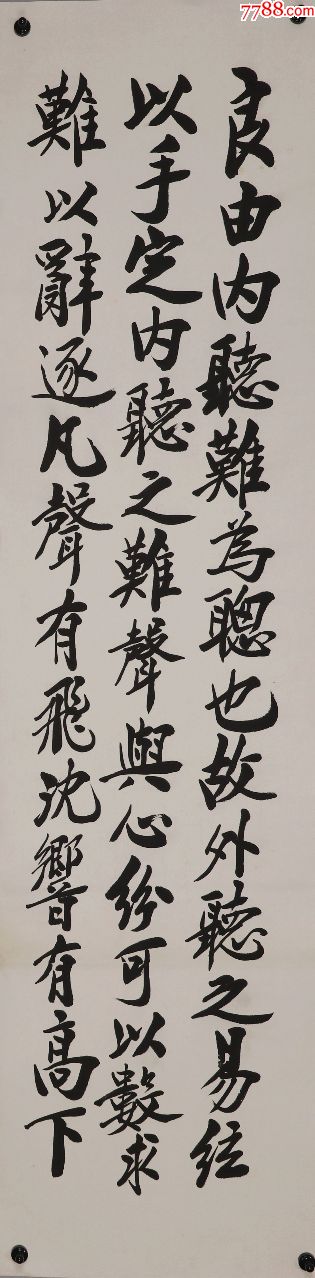 7788.com
良由内聽難為聰也故外聽之易絃
以手定内聽之難聲與心紛可以數求
難以辭逐凡聲有飛沈響有高下